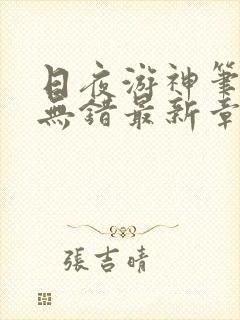 日夜游神筆
無錯最新章
張吉晴